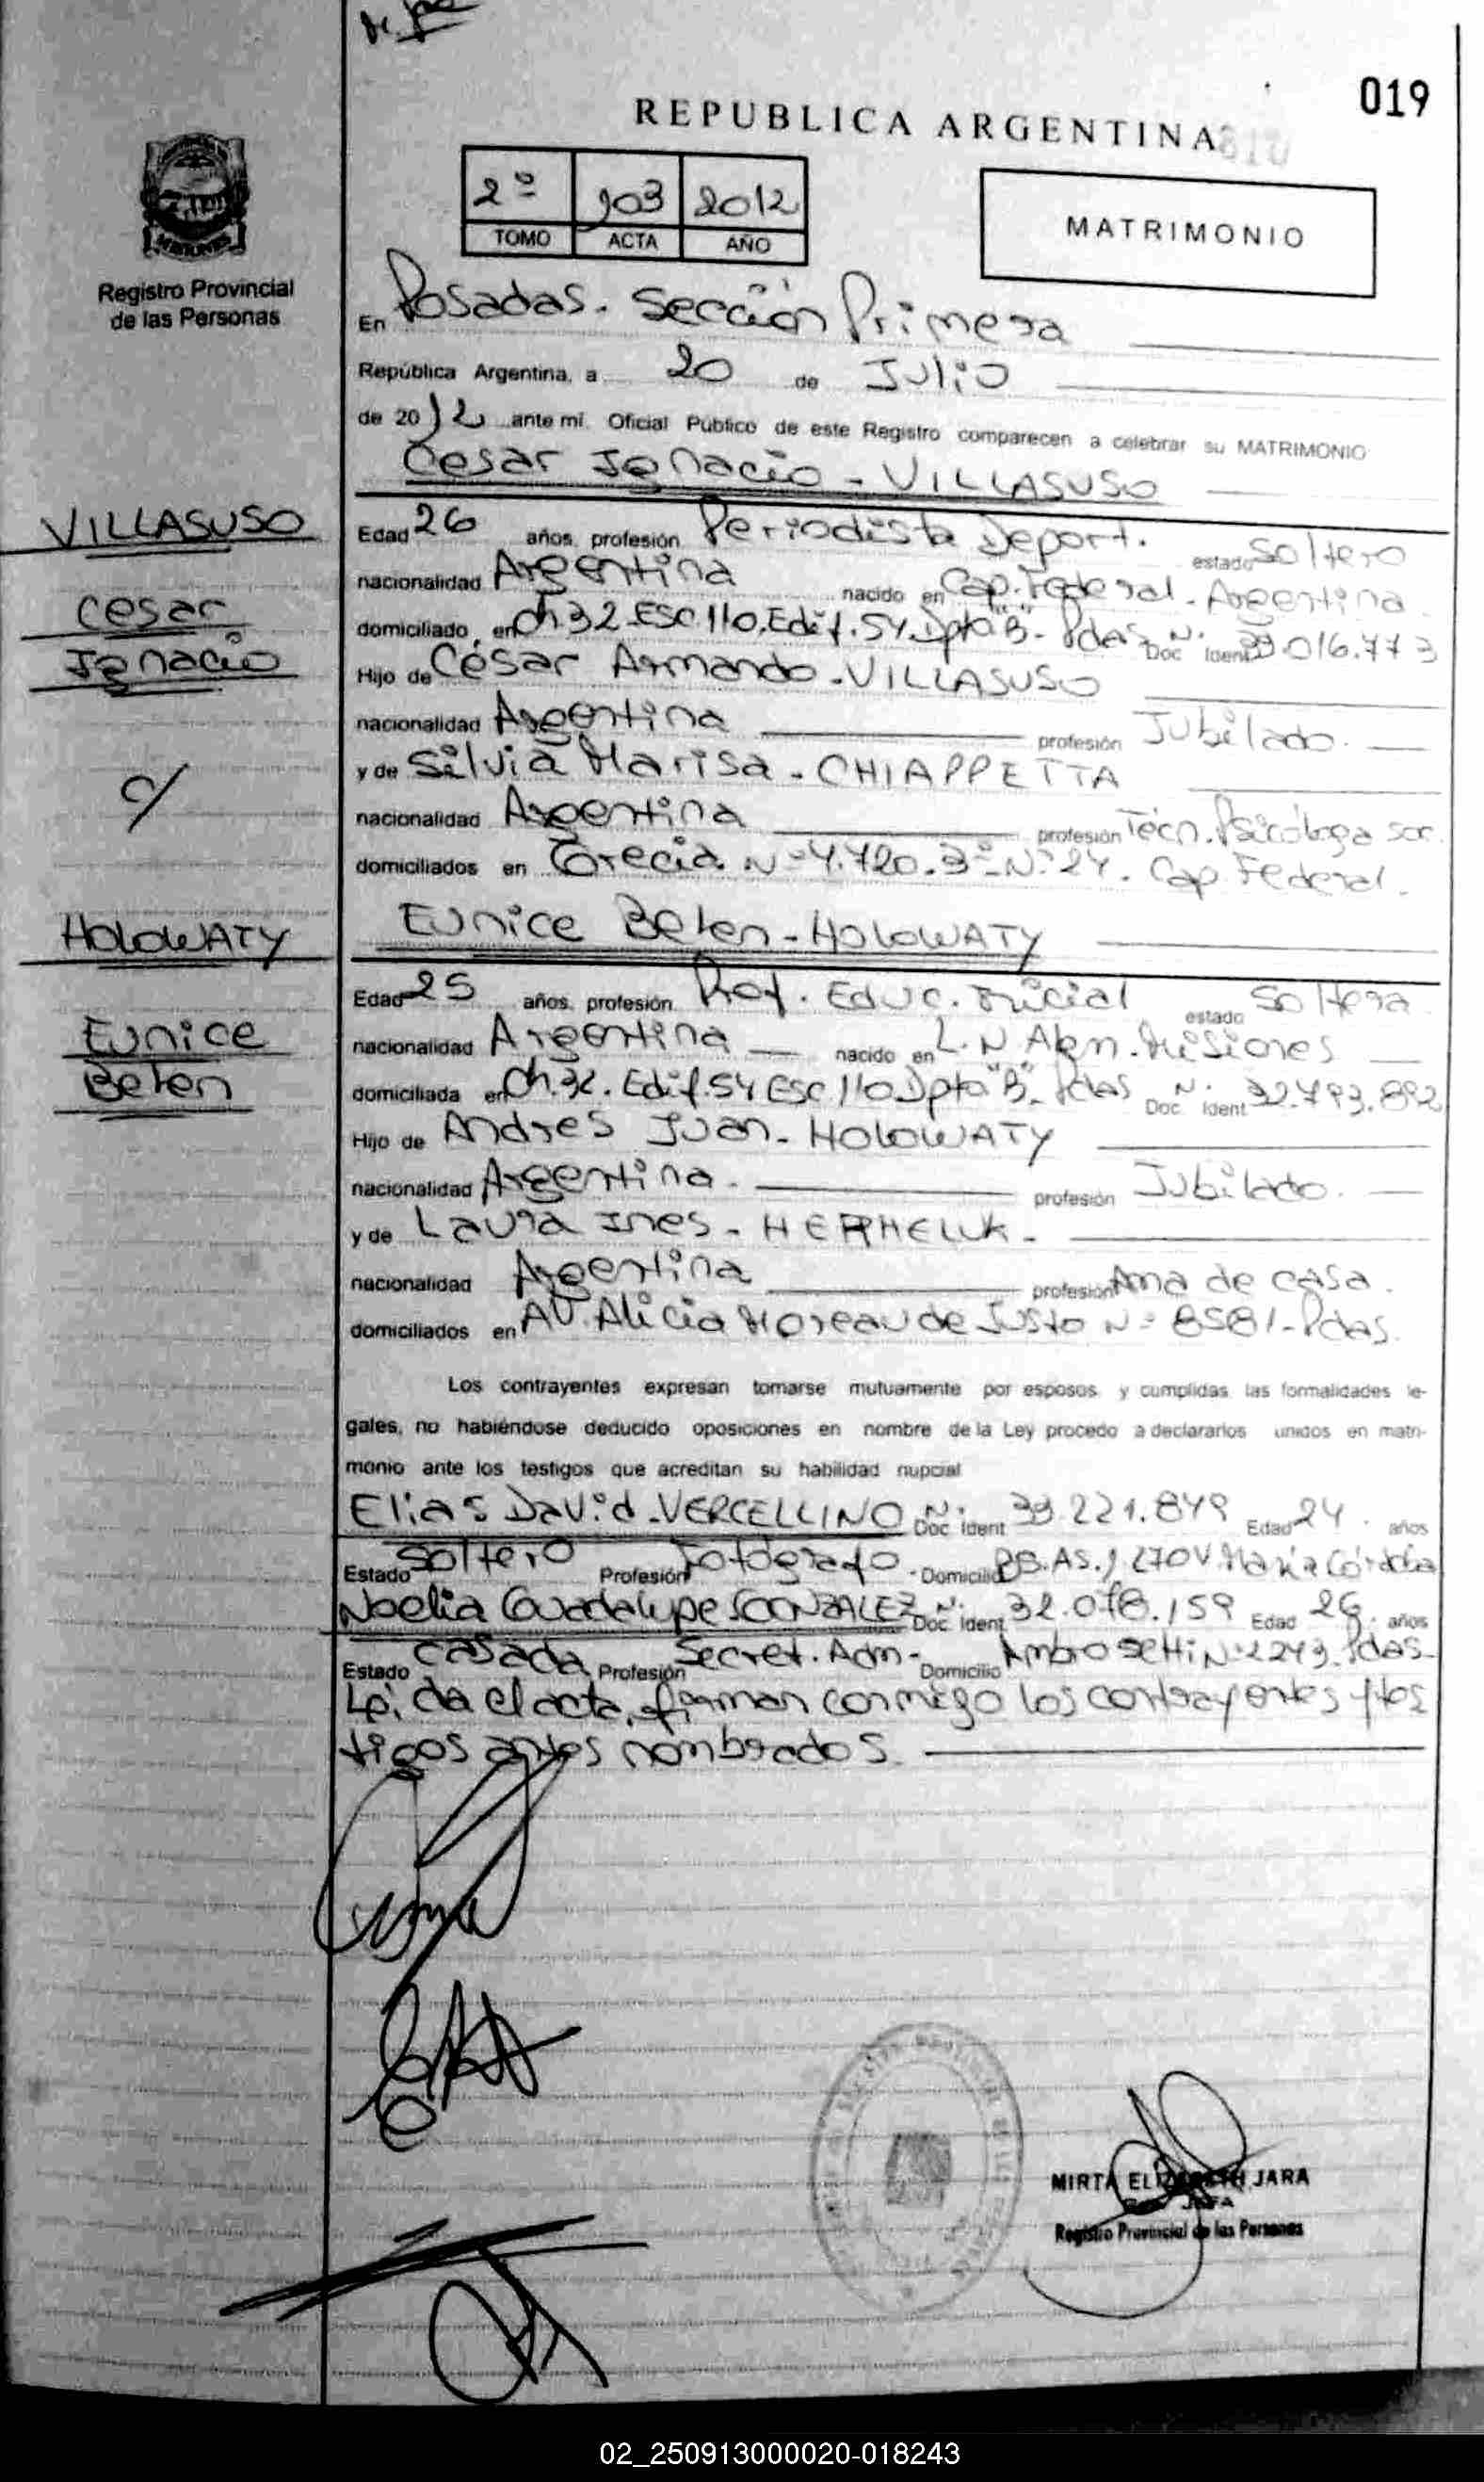 019
REPUBLICA ARGENTINA
2º 103 2012
TOMO ACTA AÑO
MATRIMONIO
MISIONES
Registro Provincial
de las Personas
En Posadas. Sección Primera
República Argentina, a 20 de Julio
de 2012 ante mí Oficial Público de este Registro comparecen a celebrar su MATRIMONIO
Cesar Ignacio - VILLASUSO
VILLASUSO
Cesar
Ignacio
c/
HOLOWATY
Eunice
Belen
Edad 26 años, profesión Periodista Deport. estado Soltero
nacionalidad Argentina nacido en Cap. Federal - Argentina
domiciliado en Ch. 32 Esc. 110. Edif. 54 Dpto "B" - Pdas Doc Ident Nº .016.773
Hijo de César Armando - VILLASUSO
nacionalidad Argentina profesión Jubilado.
y de Silvia Marisa - CHIAPPETTA
nacionalidad Argentina profesión Tecn. Psicóloga soc.
domiciliados en Grecia Nº 4.720. 3º - Nº 24. Cap. Federal.
Eunice Belen - HOLOWATY
Edad 25 años, profesión Prof. Educ. Inicial estado Soltera
nacionalidad Argentina nacido en L.N. Alem. Misiones
domiciliada en Ch. 32. Edif. 54 Esc 110 Dpto "B" - Pdas Doc Ident Nº 32.793.892
Hijo de Andres Juan - HOLOWATY
nacionalidad Argentina. profesión Jubilado.
y de Laura Ines - HERHELUK -
nacionalidad Argentina profesión Ama de casa.
domiciliados en AV. Alicia Moreau de Justo Nº 8581 - Pdas.
Los contrayentes expresan tomarse mutuamente por esposos y cumplidas las formalidades le-
gales, no habiéndose deducido oposiciones en nombre de la Ley procedo a declararlos unidos en matri-
monio ante los testigos que acreditan su habilidad nupcial
Elias David - VERCELLINO Doc Ident Nº 33.221.849 Edad 24. años
Estado Soltero Profesión Fotógrafo - Domicilio Maria Córdoba
Noelia Guadalupe GONZALEZ Doc Ident Nº 32.078.159 Edad 26. años
Estado Casada Profesión Secret. Adm - Domicilio Ambrosetti Nº 2243. Pdas -
Leída el acta, firman conmigo los contrayentes y tes
tigos antes nombrados.
MIRTA ELIZABETH JARA
JEFA
Registro Provincial de las Personas
02_250913000020-018243